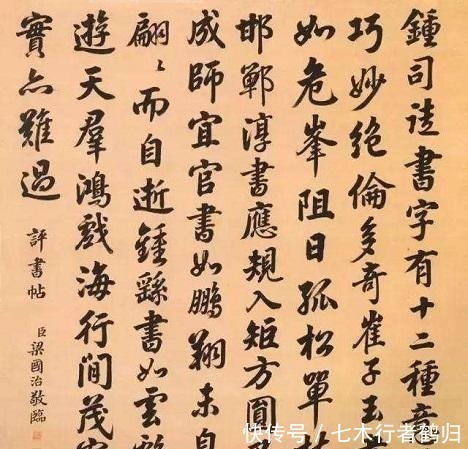 鍾司徒書字有十二種意
巧妙絕倫多奇崔子玉
如危峯阻日孤松單
邯鄲淳書應規入矩方圓
成師宜官書如鵬翔未
翩〻而自逝鍾繇書如雲
遊天羣鴻戲海行間茂
實亦難過
評書帖
臣梁國治敬臨
快传号 / 七木行者鹤归